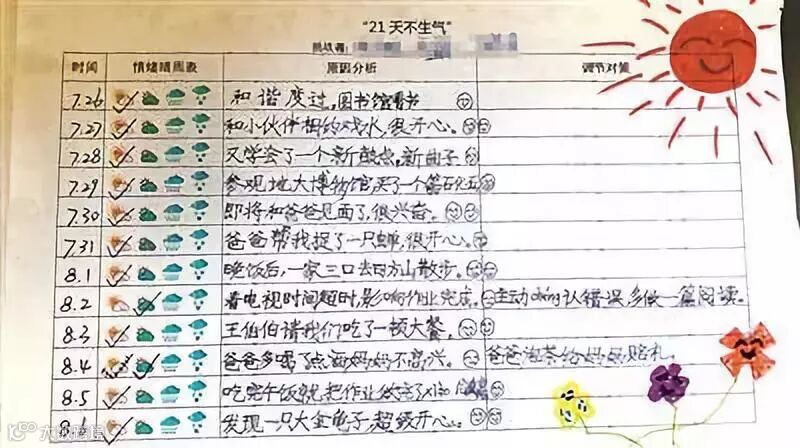 "21天不生气"
时间 情绪晴雨表 原因分析 调节对策
7.26 和谐度过，图书馆看书
7.27 和小伙伴相约戏水，很开心。
7.28 又学会了一个新鼓点，新曲子
7.29 参观地大博物馆，买了一个
7.30 即将和爸爸见面了，很兴奋。
7.31 爸爸帮我捉了一只蝉，很开心。
8.1 晚饭后，一家三口去方山散步。
8.2 看电视时间超时，影响作业完成。 主动 认错误，多做一篇阅读。
8.3 王伯伯请我们吃了一顿大餐，
8.4 爸爸多喝了点酒妈妈不高兴。 爸爸泡茶给妈妈赔礼。
8.5 吃完午饭就把作业做完了
8.6 发现一只大金龟子，超级开心。